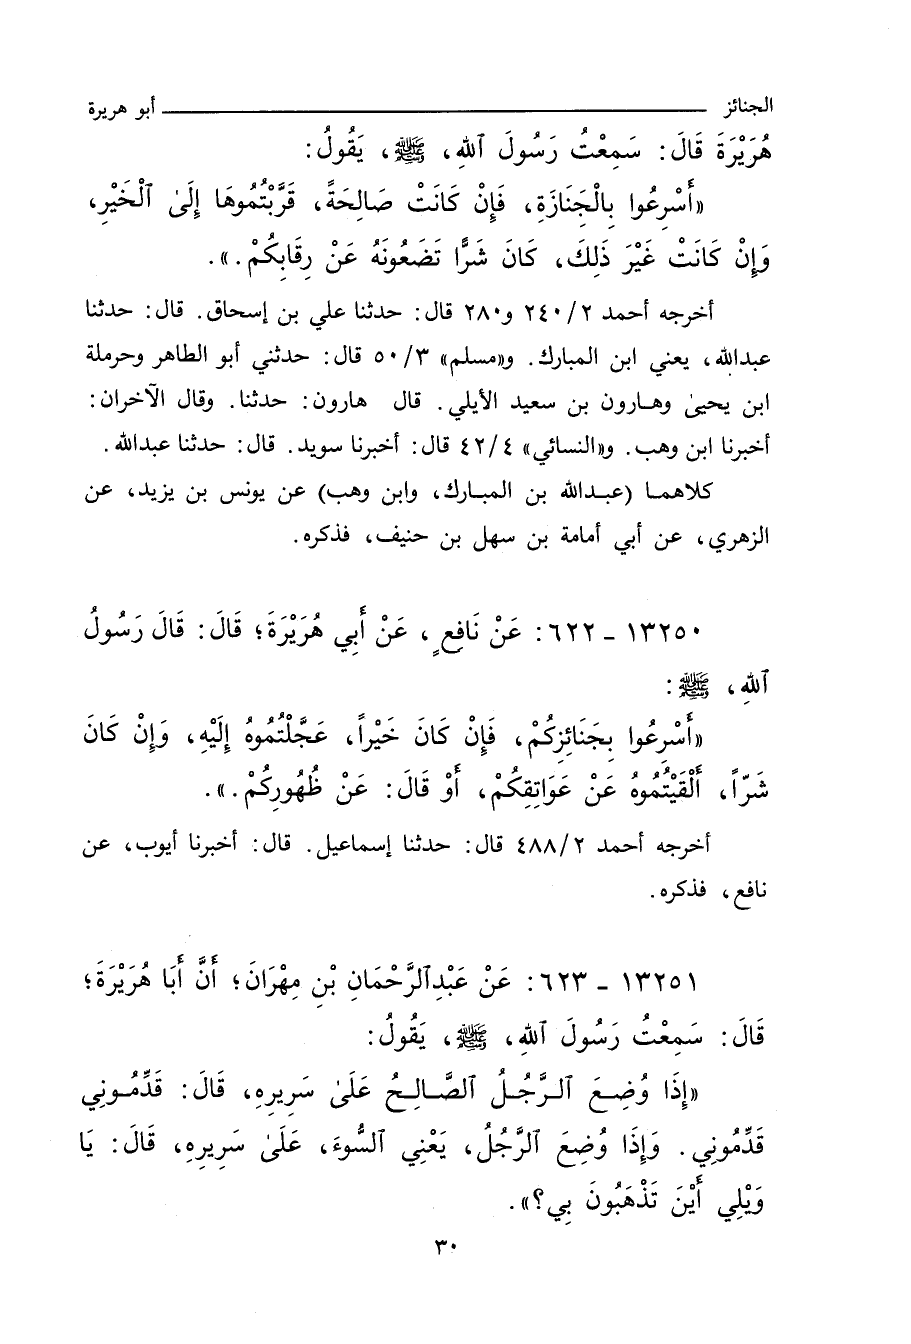 الجنائز ــــــــــــــــــــــــــــــــــــــــــ أبو هريرة
هُرَيْرَةَ قَالَ: سَمِعْتُ رَسُولَ ٱللهِ، ﷺ، يَقُولُ:
«أَسْرِعُوا بِالْجَنَازَةِ، فَإِنْ كَانَتْ صَالِحَةً، قَرَّبْتُمُوهَا إِلَىٰ ٱلْخَيْرِ،
وَإِنْ كَانَتْ غَيْرَ ذَلِكَ، كَانَ شَرًّا تَضَعُونَهُ عَنْ رِقَابِكُمْ.».
أخرجه أحمد ٢/٢٤٠ و٢٨٠ قال: حدثنا علي بن إسحاق. قال: حدثنا
عبدالله، يعني ابن المبارك. و«مسلم» ٣/٥٠ قال: حدثني أبو الطاهر وحرملة
ابن يحيىٰ وهارون بن سعيد الأيلي. قال هارون: حدثنا. وقال الآخران:
أخبرنا ابن وهب. و«النسائي» ٤/٤٢ قال: أخبرنا سويد. قال: حدثنا عبدالله.
كلاهما (عبدالله بن المبارك، وابن وهب) عن يونس بن يزيد، عن
الزهري، عن أبي أمامة بن سهل بن حنيف، فذكره.
١٣٢٥٠ - ٦٢٢: عَنْ نَافِعٍ، عَنْ أَبِي هُرَيْرَةَ؛ قَالَ: قَالَ رَسُولُ
ٱللهِ، ﷺ:
«أَسْرِعُوا بِجَنَائِزِكُمْ، فَإِنْ كَانَ خَيْراً، عَجَّلْتُمُوهُ إِلَيْهِ، وَإِنْ كَانَ
شَرّاً، أَلْقَيْتُمُوهُ عَنْ عَوَاتِقِكُمْ، أَوْ قَالَ: عَنْ ظُهُورِكُمْ.».
أخرجه أحمد ٢/٤٨٨ قال: حدثنا إسماعيل. قال: أخبرنا أيوب، عن
نافع، فذكره.
١٣٢٥١ - ٦٢٣: عَنْ عَبْدِٱلرَّحْمَانِ بْنِ مِهْرَانَ؛ أَنَّ أَبَا هُرَيْرَةَ؛
قَالَ: سَمِعْتُ رَسُولَ ٱللهِ، ﷺ، يَقُولُ:
«إِذَا وُضِعَ ٱلرَّجُلُ ٱلصَّالِحُ عَلَىٰ سَرِيرِهِ، قَالَ: قَدِّمُونِي
قَدِّمُونِي. وَإِذَا وُضِعَ ٱلرَّجُلُ، يَعْنِي ٱلسُّوءَ، عَلَىٰ سَرِيرِهِ، قَالَ: يَا
وَيْلِي أَيْنَ تَذْهَبُونَ بِي؟».
٣٠